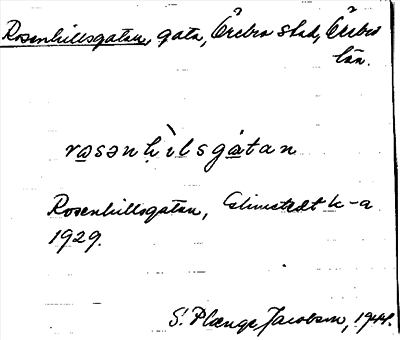 Rosenhillsgatan, gata, Örebro stad, Örebro
län.
rɷsənḥìlsgɷ̀tan
Rosenhillsgatan, k-a
1929.
S. Plænge Jacobson, 1944.